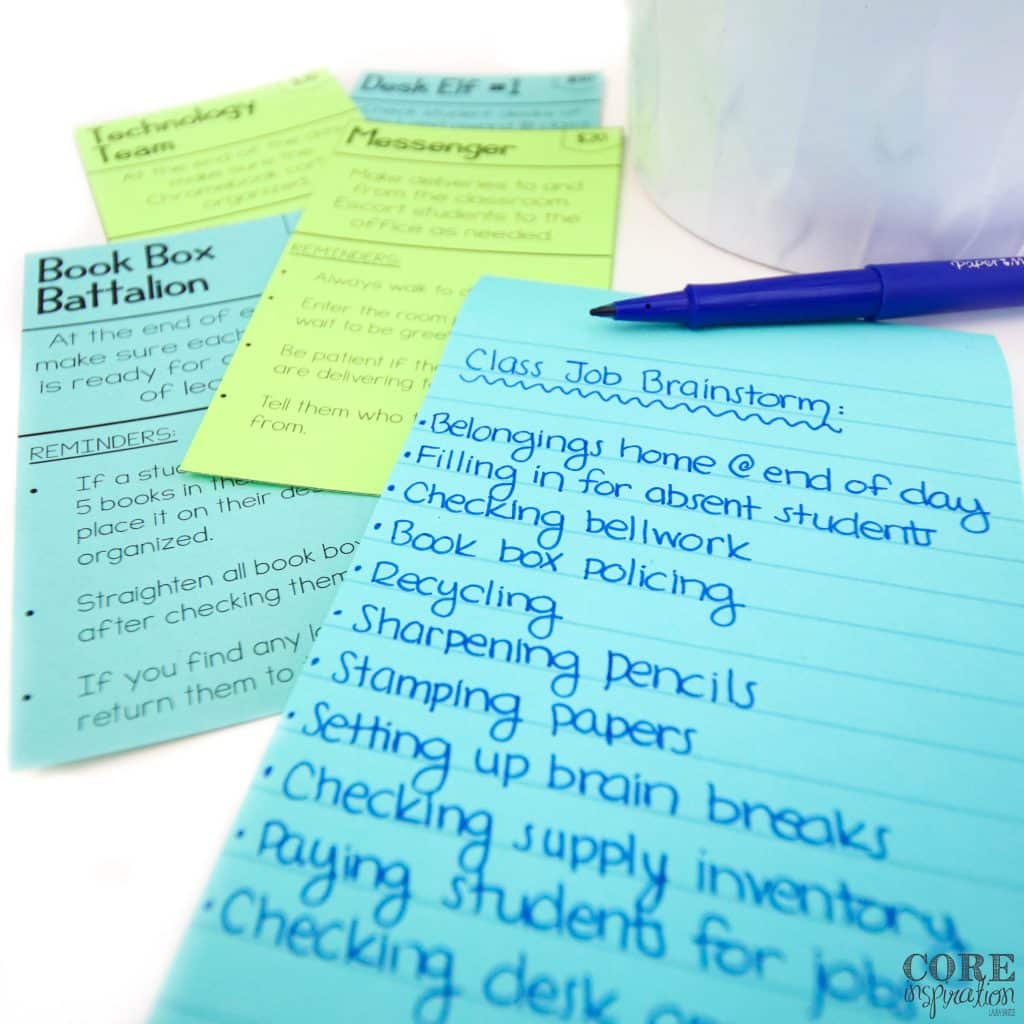 Technology
Team
At the end of the day,
make sure the
Chromebook
organized.
Desk Elf #1
Messenger
$20
Make deliveries to and
from the classroom.
Escort students to the
office as needed.
REMINDERS:
Always walk to
Enter the room
wait to be
Be patient if
are delivering
Tell them who
from.
Book Box
Battalion
At the end of
make sure
is ready for
of
REMINDERS:
If a
5 books in
place it on their
organized.
Straighten all book
after checking
If you find any
return them to
Class Job Brainstorm:
• Belongings home @ end of day
• Filling in for absent students
• Checking bellwork
• Book box policing
• Recycling
• Sharpening pencils
• Stamping papers
• Setting up brain breaks
• Checking supply inventory
• Paying students for jobs
• Checking desk
CORE
inspiration